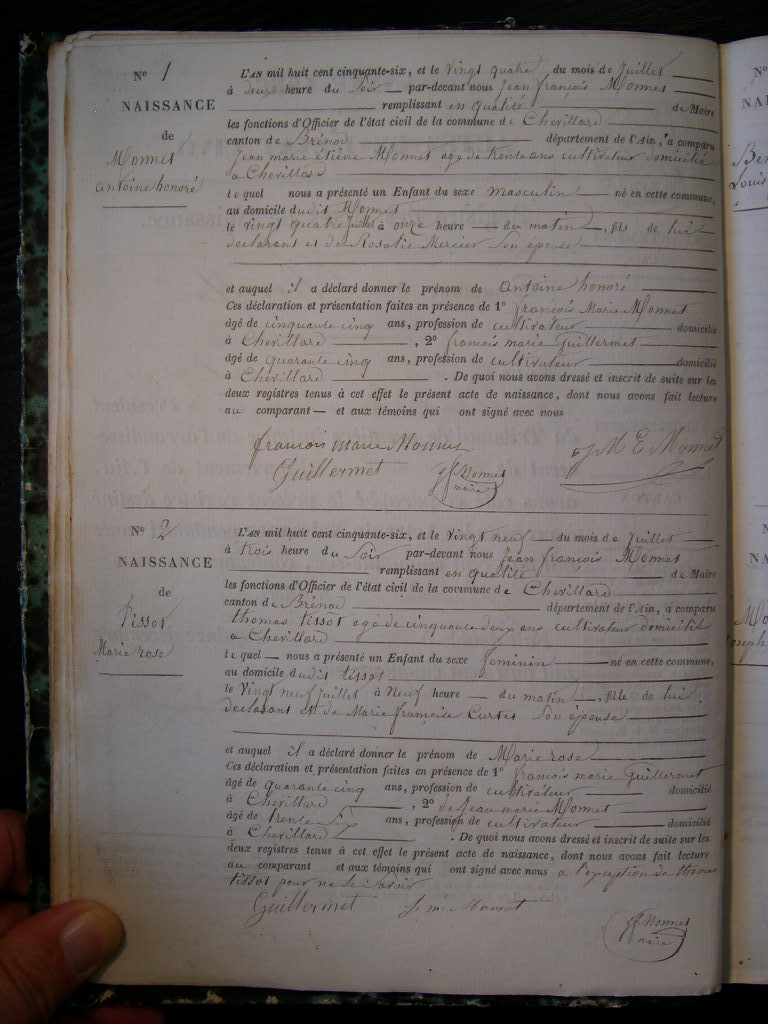 N° 1
NAISSANCE
de
Monnet
antoine honoré
L'AN mil huit cent cinquante-six, et le vingt quatre du mois de Juillet
à deux heure du Soir par-devant nous Jean françois Monnet
remplissant en qualité de Maire
les fonctions d'Officier de l'état civil de la commune de Chevillard
canton de Brénod département de l'Ain, a comparu
Jean marie étiène Monnet age de trente ans cultivateur domicilié
a Chevillard
le quel nous a présenté un Enfant du sexe masculin né en cette commune,
au domicile dudit Monnet
le vingt quatre Juillet à onze heure du matin, fils de lui
declarant et de Rosalie Mercier Son épouse
et auquel il a déclaré donner le prénom de antoine honoré
Ces déclaration et présentation faites en présence de 1° françois Marie Monnet
âgé de cinquante cinq ans, profession de cultivateur domicilié
à Chevillard, 2° francois marie Guillermet
âgé de quarante cinq ans, profession de cultivateur domicilié
à Chevillard. De quoi nous avons dressé et inscrit de suite sur les
deux registres tenus à cet effet le présent acte de naissance, dont nous avons fait lecture
au comparant et aux témoins qui ont signé avec nous
francois marie Monnet
J M E Monnet
Guillermet
jf Monnet
maire
N° 2
NAISSANCE
de
tissot
Marie rose
L'AN mil huit cent cinquante-six, et le vingt neuf du mois de Juillet
à trois heure du Soir par-devant nous Jean françois Monnet
remplissant en qualité de Maire
les fonctions d'Officier de l'état civil de la commune de Chevillard
canton de Brénod département de l'Ain, a comparu
thomas tissot age de cinquante deux ans cultivateur domicilié
a Chevillard
le quel nous a présenté un Enfant du sexe feminin né en cette commune,
au domicile dudit tissot
le vingt neuf juillet à Neuf heure du matin, fille de lui
declarant et de Marie françoise Curtet Son épouse
et auquel il a déclaré donner le prénom de Marie rose
Ces déclaration et présentation faites en présence de 1° francois marie Guillermet
âgé de quarante cinq ans, profession de cultivateur domicilié
à Chevillard, 2° de Jean marie Monnet
âgé de trente ans, profession de cultivateur domicilié
à Chevillard. De quoi nous avons dressé et inscrit de suite sur les
deux registres tenus à cet effet le présent acte de naissance, dont nous avons fait lecture
au comparant et aux témoins qui ont signé avec nous a l'exception de thomas
tissot pour ne le Savoir
Guillermet
Monnet
jf Monnet
maire